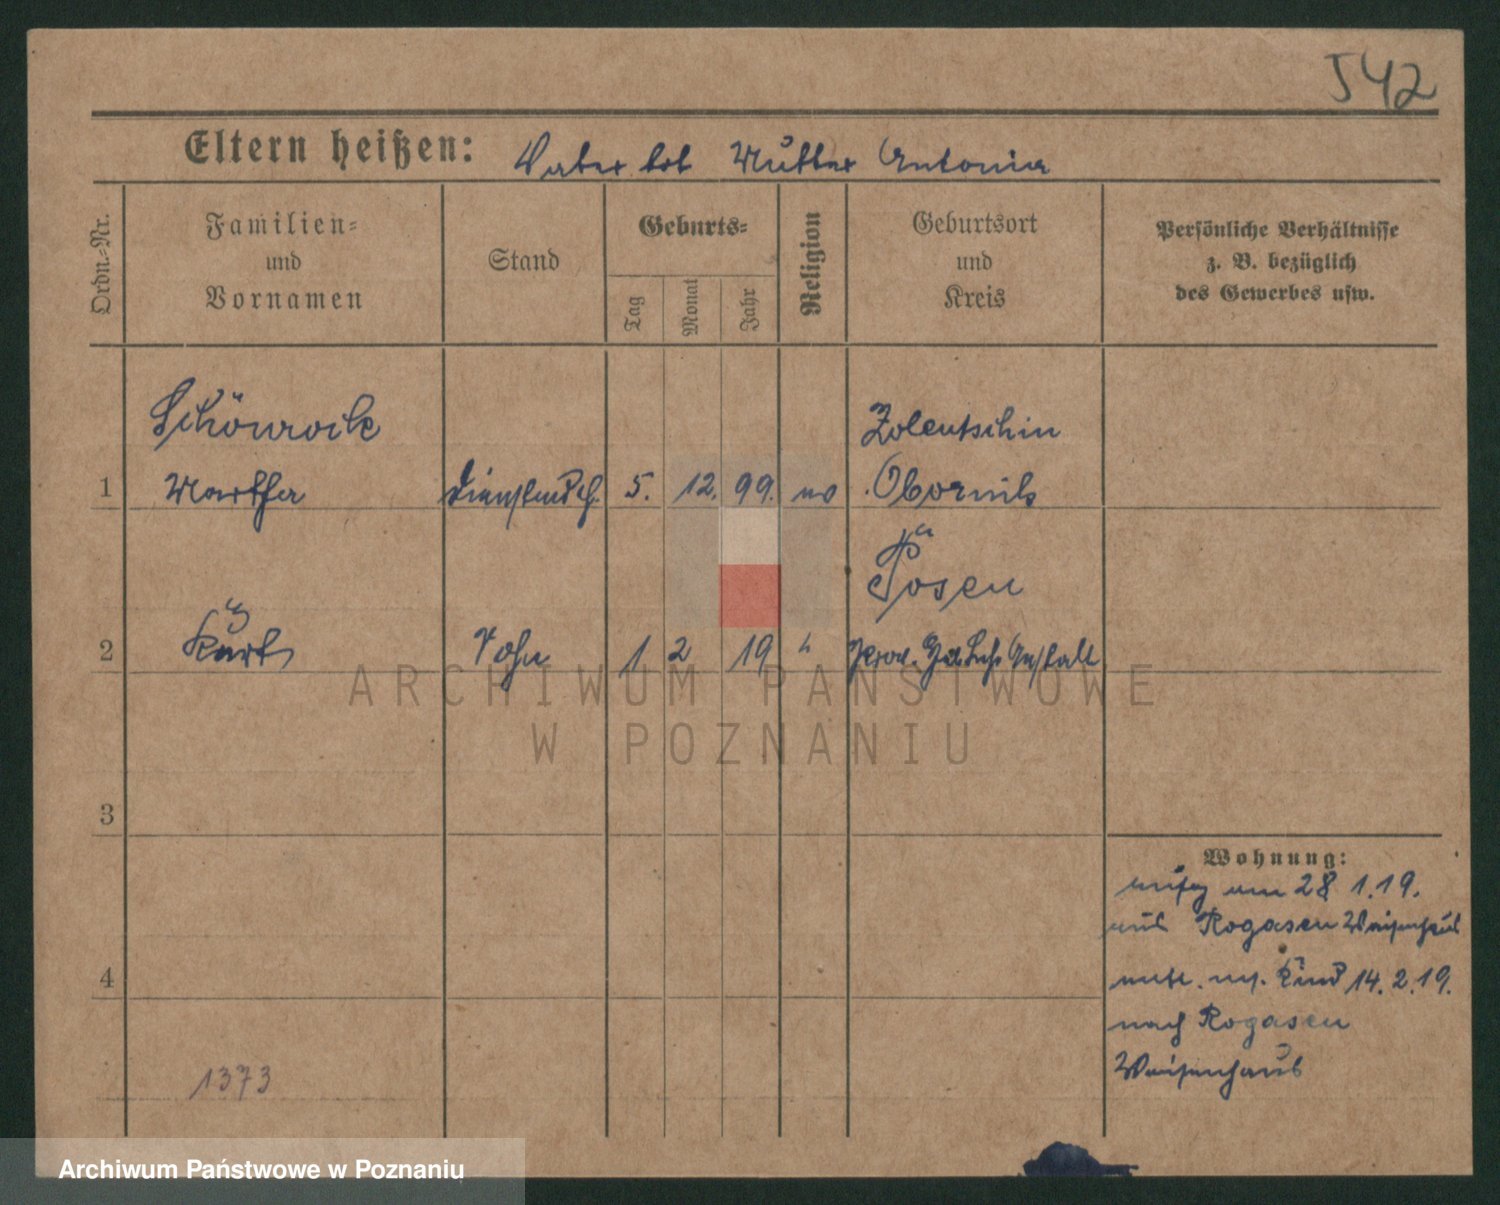 542
Eltern heißen: Vater tot Mutter Antonia
Ordn.-Nr.
Familien=
und
Vornamen
Stand
Geburts=
Tag
Monat
Jahr
Religion
Geburtsort
und
Kreis
Persönliche Verhältnisse
z. B. bezüglich
des Gewerbes usw.
Schönrock
Zolentschin
1 Martha Dienstmdch. 5. 12. 99. ev Obornik
Posen
2 Kurt Sohn 1 2 19 " Prov. Heb. Lehr Anstalt
3
Wohnung:
am 28 1.19.
aus Rogasen Waisenhaus
4
m. Kind 14.2.19.
nach Rogasen
Waisenhaus
1373
ARCHIWUM PAŃSTWOWE
W POZNANIU
Archiwum Państwowe w Poznaniu